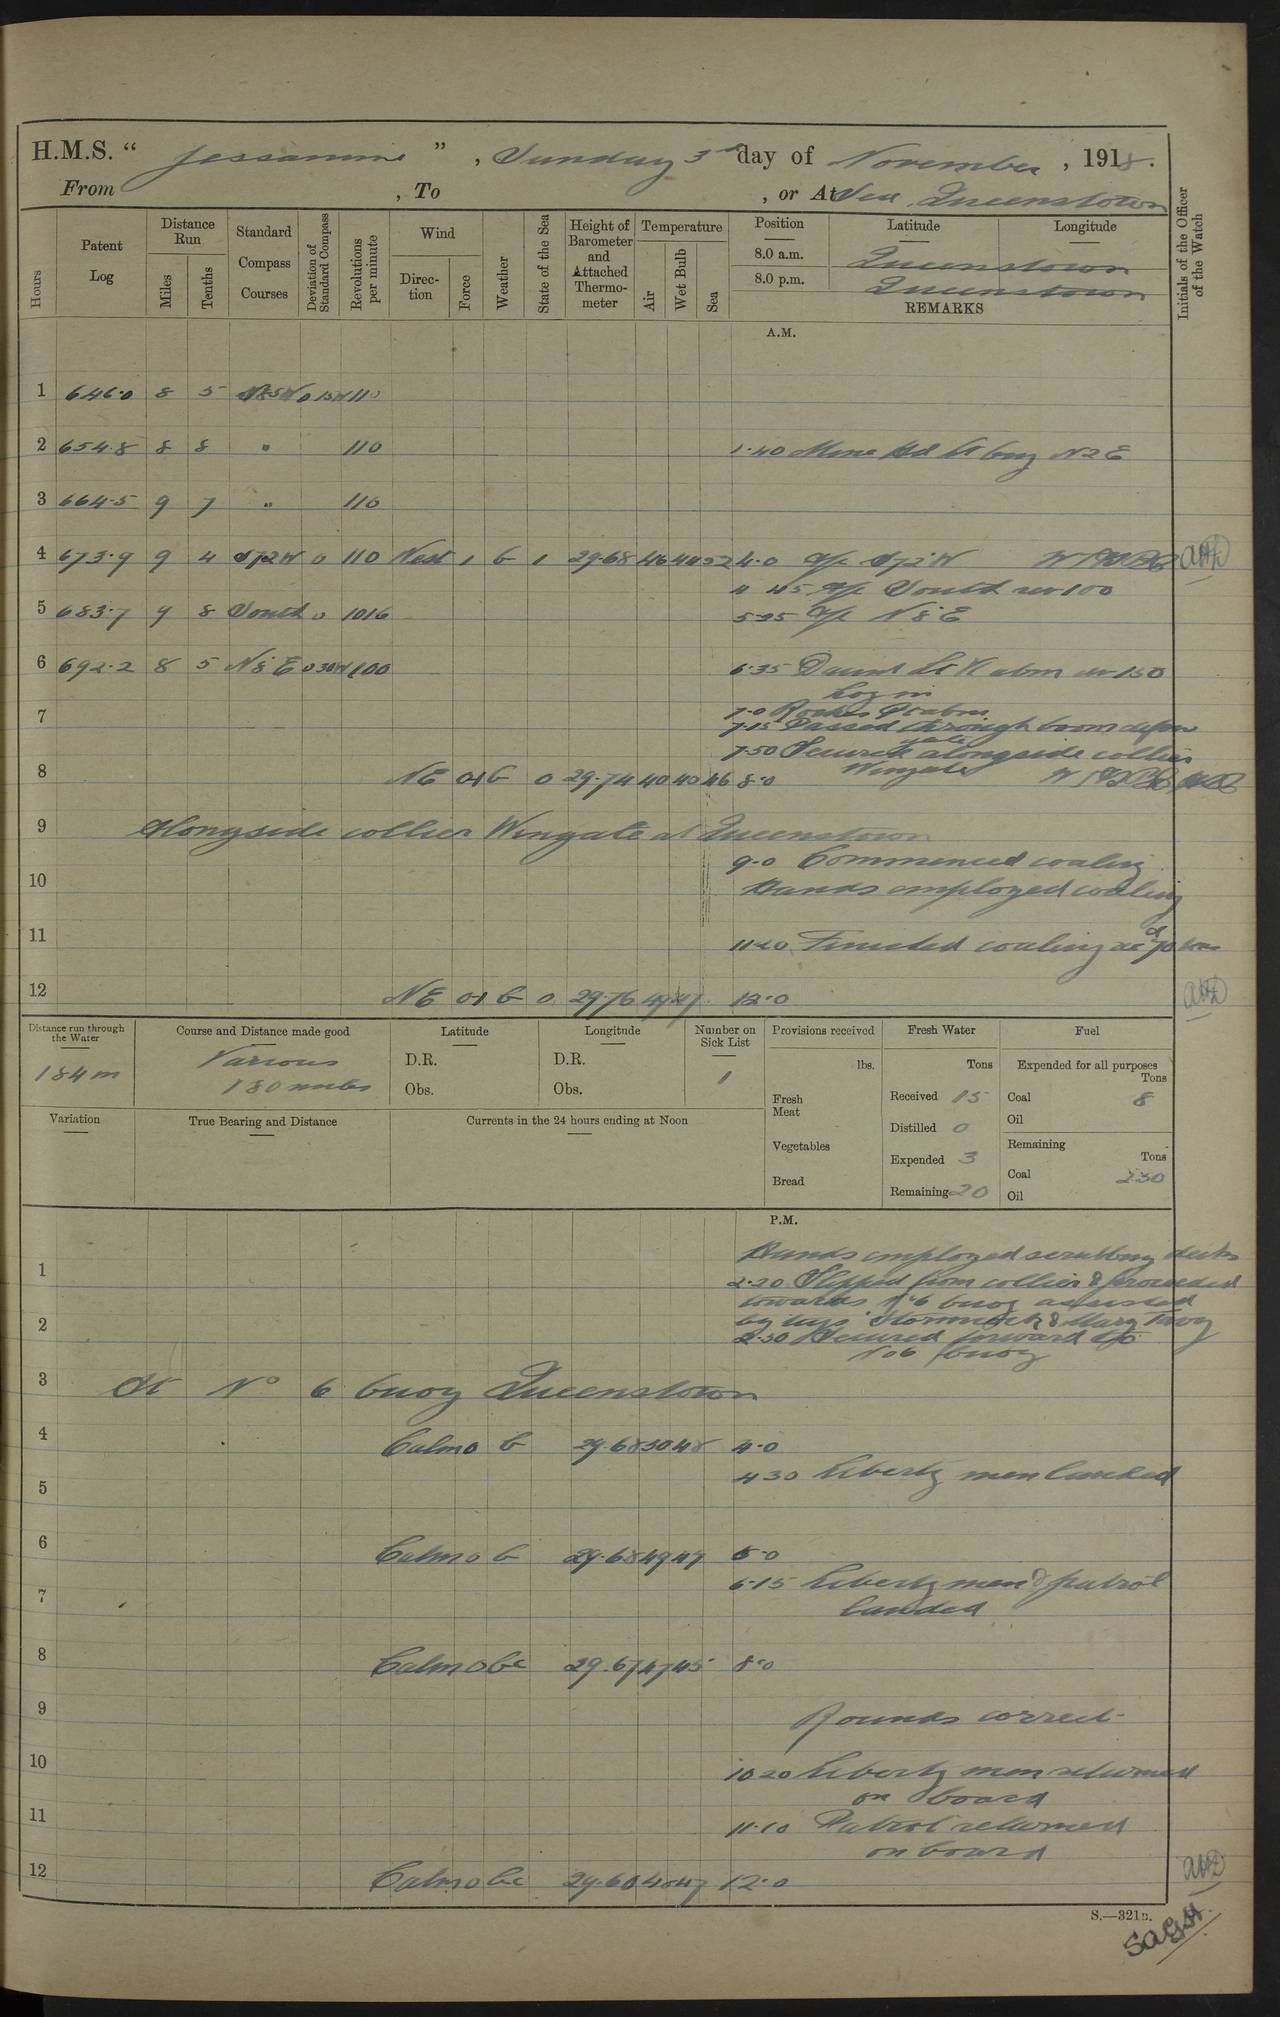 H.M.S. “ Jessamine ” , Sunday 3rd day of November , 1918.
From , To , or At Sea, Queenstown
Hours
Patent Log
Distance Run
Miles
Tenths
Standard Compass Courses
Deviation of Standard Compass
Revolutions per minute
Wind
Direction
Force
Weather
State of the Sea
Height of Barometer and Attached Thermometer
Temperature
Air
Wet Bulb
Sea
Position
8.0 a.m.
8.0 p.m.
Latitude
Longitude
Queenstown
Queenstown
REMARKS
Initials of the Officer of the Watch
A.M.
1 646.0 8 5 110
2 654.8 8 8 " 110 1.40 Mine Hd Lt brg N2E
3 664.5 9 7 " 110
4 673.9 9 4 S72W 0 110 West 1 b 1 29.68 46 44 52 4.0 a/c S72W
4 45 a/c South rev 100
5 683.7 9 8 South 0 5.25 a/c N8E
6 692.2 8 5 N8E 0 30W 100 6.35 Daunt Lt V abm rev 150
Log in
7 7.0 Roches Pt abm
7.15 Passed through boom defence
gate
7.50 Secured alongside collier
Wingate
8 NE 0-1 b 0 29.74 40 40 46 8.0
9 Alongside collier Wingate at Queenstown
9.0 Commenced coaling
10 Hands employed coaling
11 11.20 Finished coaling recd 70 tons
12 NE 0-1 b 0 29.76 49 47 12.0
Distance run through the Water
184 m
Course and Distance made good
Various
180 miles
Latitude
D.R.
Obs.
Longitude
D.R.
Obs.
Number on Sick List
1
Provisions received
lbs.
Fresh Meat
Vegetables
Bread
Fresh Water
Tons
Received 15
Distilled 0
Expended 3
Remaining 20
Fuel
Expended for all purposes
Tons
Coal 8
Oil
Remaining
Tons
Coal 230
Oil
Variation
True Bearing and Distance
Currents in the 24 hours ending at Noon
P.M.
Hands employed scrubbing decks
1 2.20 Slipped from collier & proceeded
towards No 6 buoy assisted
2 by tugs Stormcock & Mary Tavy
2.30 Secured forward to
No 6 buoy
3 At No 6 buoy Queenstown
4 Calm 0 b 29.68 50 48 4.0
4 30 Liberty men landed
5
6 Calm 0 b 29.68 49 47 6.0
6.15 Liberty men & patrol
7 landed
8 Calm 0 bc 29.67 47 45 8.0
9 Rounds correct
10 10 20 Liberty men returned
on board
11 11.10 Patrol returned
on board
12 Calm 0 bc 29.60 12.0
S.—321B.